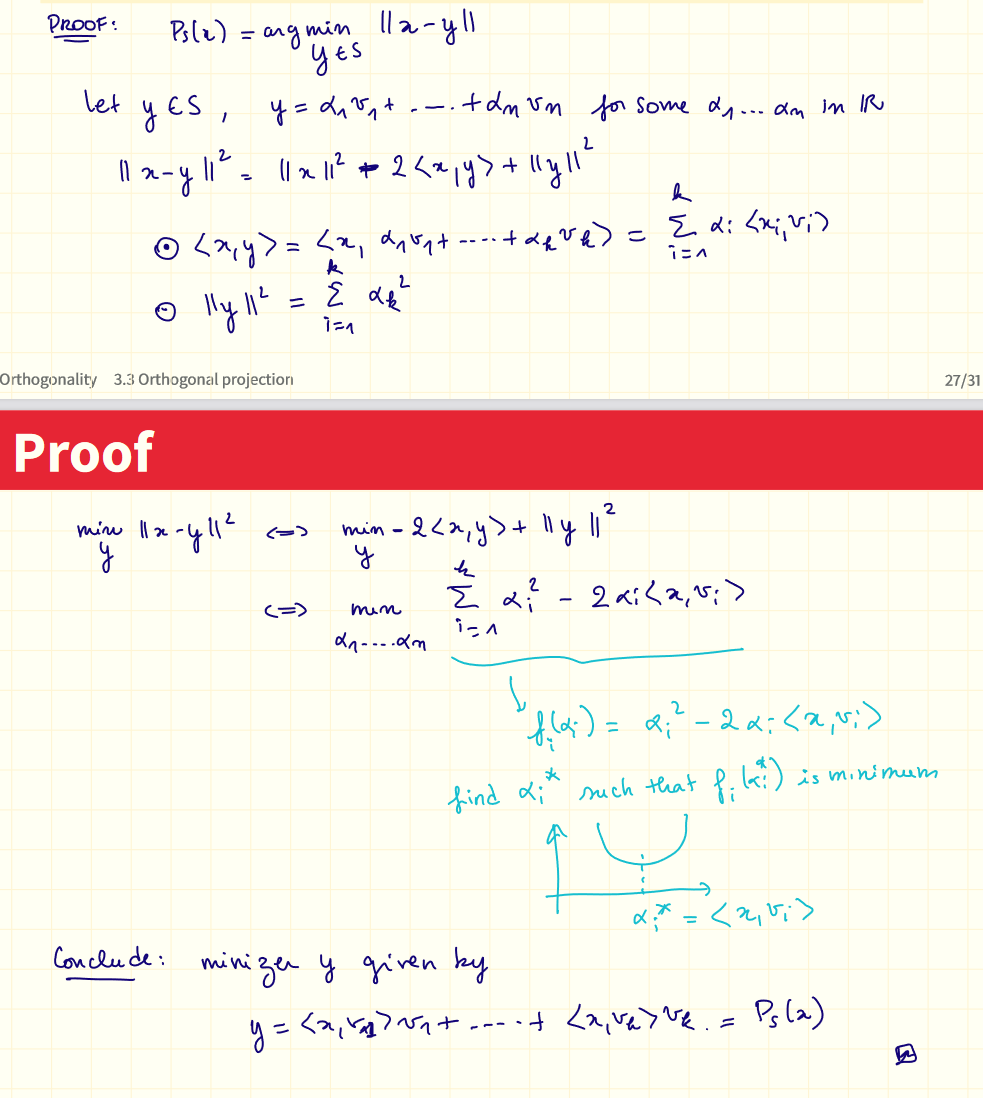 PROOF: Ps(x) = argmin ||x-y||
y∈S
let y∈S, y = α1v1 + .-.. + αnvn for some α1...αn in ℝ
||x-y||² = ||x||² - 2<x,y> + ||y||²
⊙ <x,y> = <x, α1v1+ ----+ αkvk> = Σ_{i=1}^{k} αi <xi,vi>
⊙ ||y||² = Σ_{i=1}^{k} αk²
Orthogonality 3.3 Orthogonal projection 27/31
Proof
min_y ||x-y||² <=> min_y -2<x,y> + ||y||²
<=> min_{α1----αn} Σ_{i=1}^{k} αi² - 2αi<x,vi>
fi(αi) = αi² - 2αi<x,vi>
find αi* such that fi(αi*) is minimum
αi* = <x,vi>
Conclude: minizer y given by
y = <x,v1>v1 + ----+ <x,vk>vk. = Ps(x)